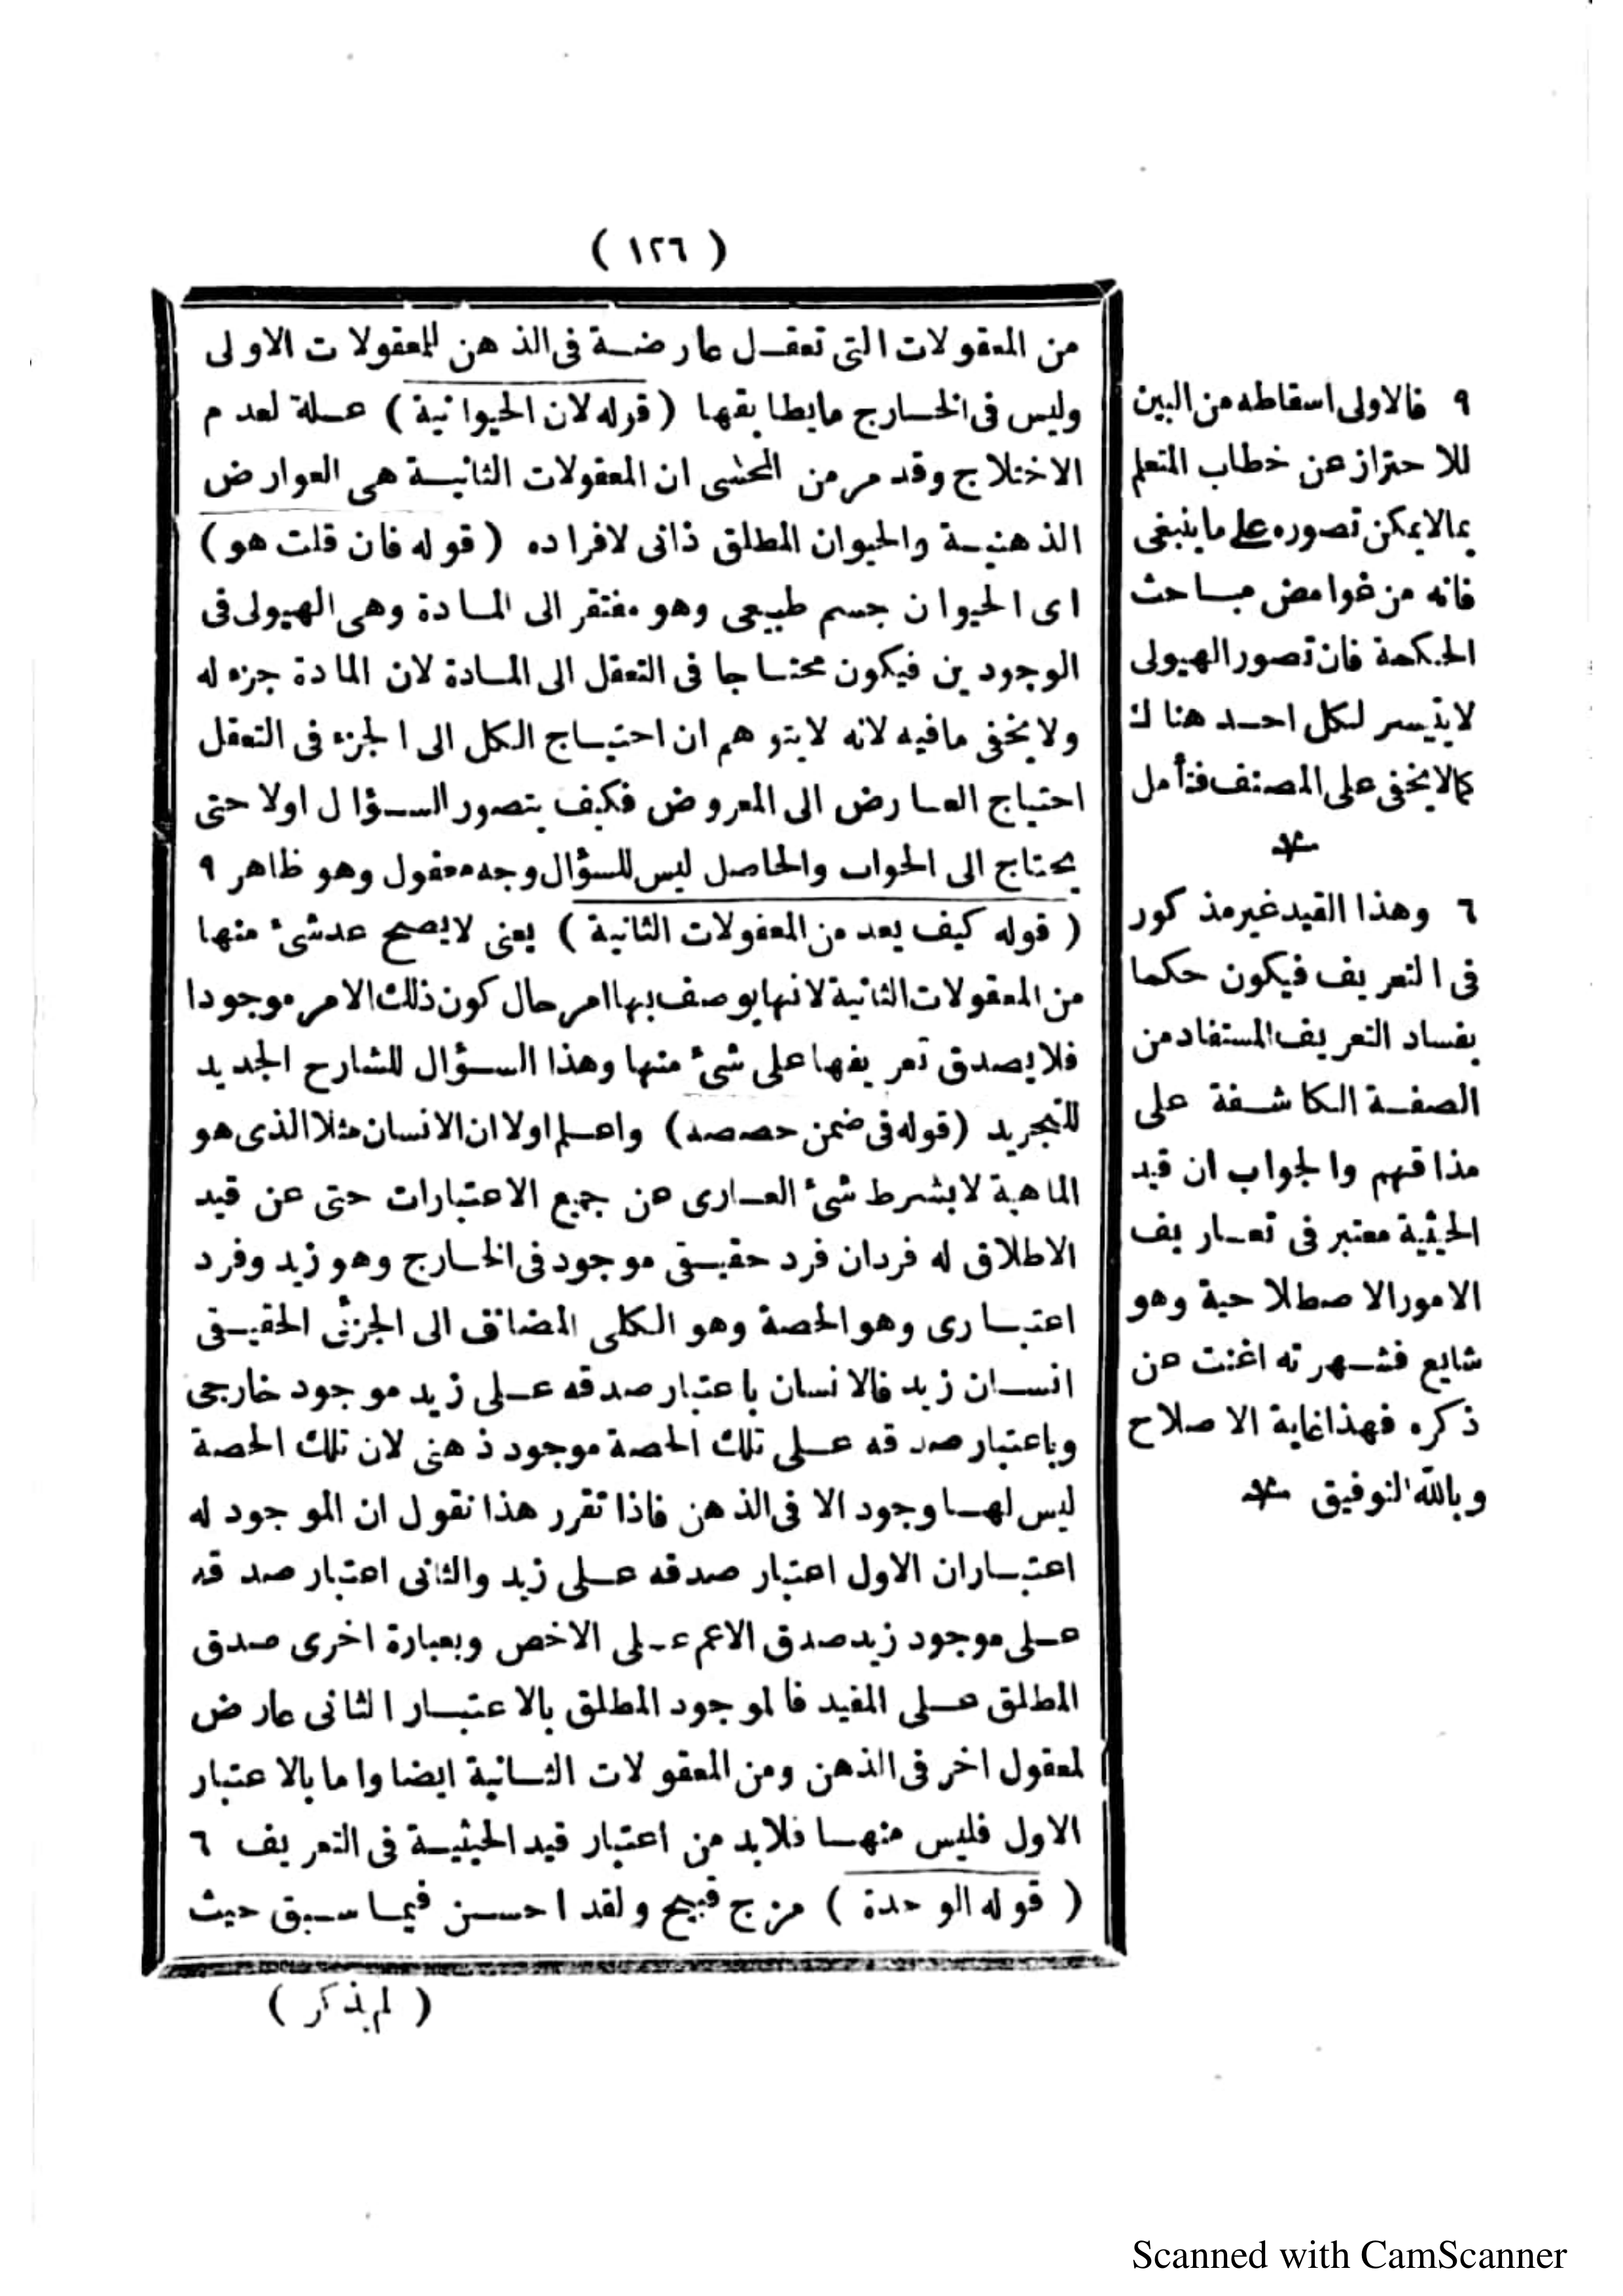 ( ١٢٦ )
من المعقولات التى تعقل عارضة فى الذهن للمعقولات الاولى
وليس فى الخارج مايطابقها ( قوله لان الحيوانية ) علة لعدم
الاختلاج وقد مر من المحشى ان المعقولات الثانية هى العوارض
الذهنية والحيوان المطلق ذاتى لافراده ( قوله فان قلت هو )
اى الحيوان جسم طبيعى وهو مفتقر الى المادة وهى الهيولى فى
الوجودين فيكون محتاجا فى التعقل الى المادة لان المادة جزء له
ولا يخفى مافيه لانه لايتوهم ان احتياج الكل الى الجزء فى التعقل
احتياج العارض الى المعروض فكيف يتصور السؤال اولا حتى
يحتاج الى الجواب والحاصل ليس للسؤال وجه معقول وهو ظاهر ٩
( قوله كيف يعد من المعقولات الثانية ) يعنى لايصح عد شئ منها
من المعقولات الثانية لانها يوصف بها امر حال كون ذلك الامر موجودا
فلا يصدق تعريفها على شئ منها وهذا السؤال للشارح الجديد
للتجريد ( قوله فى ضمن حصصه ) واعلم اولا ان الانسان مثلا الذى هو
الماهية لابشرط شئ العارى عن جميع الاعتبارات حتى عن قيد
الاطلاق له فردان فرد حقيقى موجود فى الخارج وهو زيد وفرد
اعتبارى وهو الحصة وهو الكلى المضاف الى الجزئى الحقيقى
انسان زيد فالانسان باعتبار صدقه على زيد موجود خارجى
وباعتبار صدقه على تلك الحصة موجود ذهنى لان تلك الحصة
ليس لها وجود الا فى الذهن فاذا تقرر هذا نقول ان الموجود له
اعتباران الاول اعتبار صدقه على زيد والثانى اعتبار صدقه
على موجود زيد صدق الاعم على الاخص وبعبارة اخرى صدق
المطلق على المقيد فالموجود المطلق بالاعتبار الثانى عارض
لمعقول اخر فى الذهن ومن المعقولات الثانية ايضا واما بالاعتبار
الاول فليس منها فلابد من اعتبار قيد الحيثية فى التعريف ٦
( قوله الوحدة ) مزج قبيح ولقد احسن فيما سبق حيث
( لم يذكر )
٩ فالاولى اسقاطه من البين
للاحتراز عن خطاب المتعلم
بمالايمكن تصوره على ماينبغى
فانه من غوامض مباحث
الحكمة فان تصور الهيولى
لايتيسر لكل احد هناك
كمالايخفى على المصنف فتأمل
٦ وهذا القيد غير مذكور
فى التعريف فيكون حكما
بفساد التعريف المستفاد من
الصفة الكاشفة على
مذاقهم والجواب ان قيد
الحيثية معتبر فى تعاريف
الامور الاصطلاحية وهو
شايع فشهرته اغنت عن
ذكره فهذا غاية الاصلاح
وبالله التوفيق
Scanned with CamScanner